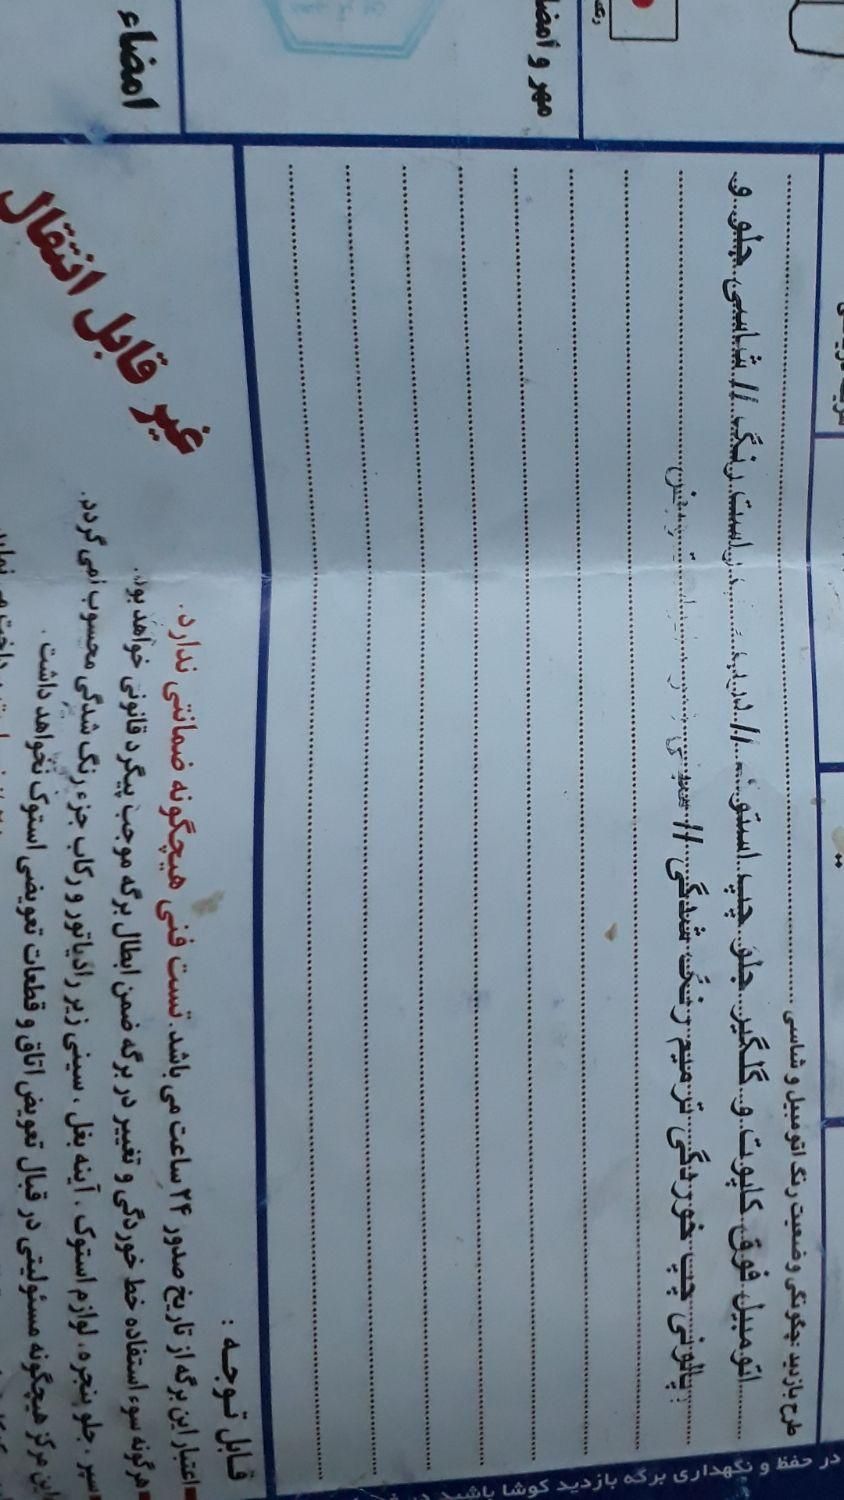 مهر و امضا
امضاء
طرح بازدید :چگونگی وضعیت رنگ اتومبیل و شاسی
اتومبیل فوق کاپوت و گلگیر جلو چپ استوک // درب راست رنگ // شاسی جلو و
پالونی چپ خوردگی ترمیم رنگ شدگی // سینی تعویض
غیر قابل انتقال
قابل توجه :
اعتبار این برگه از تاریخ صدور ۲۴ ساعت می باشد. تست فنی هیچگونه ضمانتی ندارد.
هرگونه سوء استفاده خط خوردگی و تغییر در برگه ضمن ابطال برگه موجب پیگرد قانونی خواهد بود.
سپر ، جلو پنجره، لوازم استوک ، آینه بغل ، سینی زیر رادیاتور و رکاب جزء رنگ شدگی محسوب نمی گردد.
این مرکز هیچگونه مسئولیتی در قبال تعویض اتاق و قطعات تعویضی استوک نخواهد داشت .
در حفظ و نگهداری برگه بازدید کوشا باشید